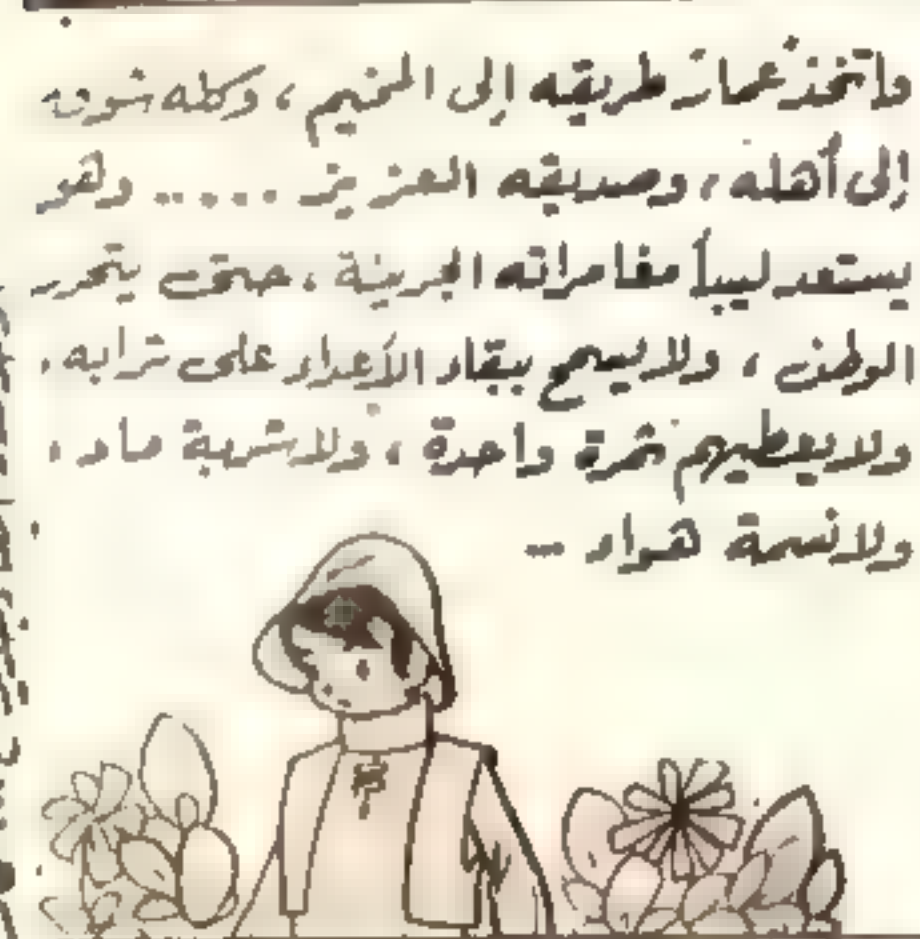 واتخذ عمارَ طريقه إلى المخيم ، وكله شوق
إلى أهله ، وصديقه العزيز ..... وهو
يستعد ليبدأ مغامراته الجريئة ، حتى يتحرر
الوطن ، ولا يسمح ببقاء الأعداء على ترابه ،
ولا يعطيهم ثمرة واحدة ، ولا شربة ماء ،
ولا نسمة هواء ...